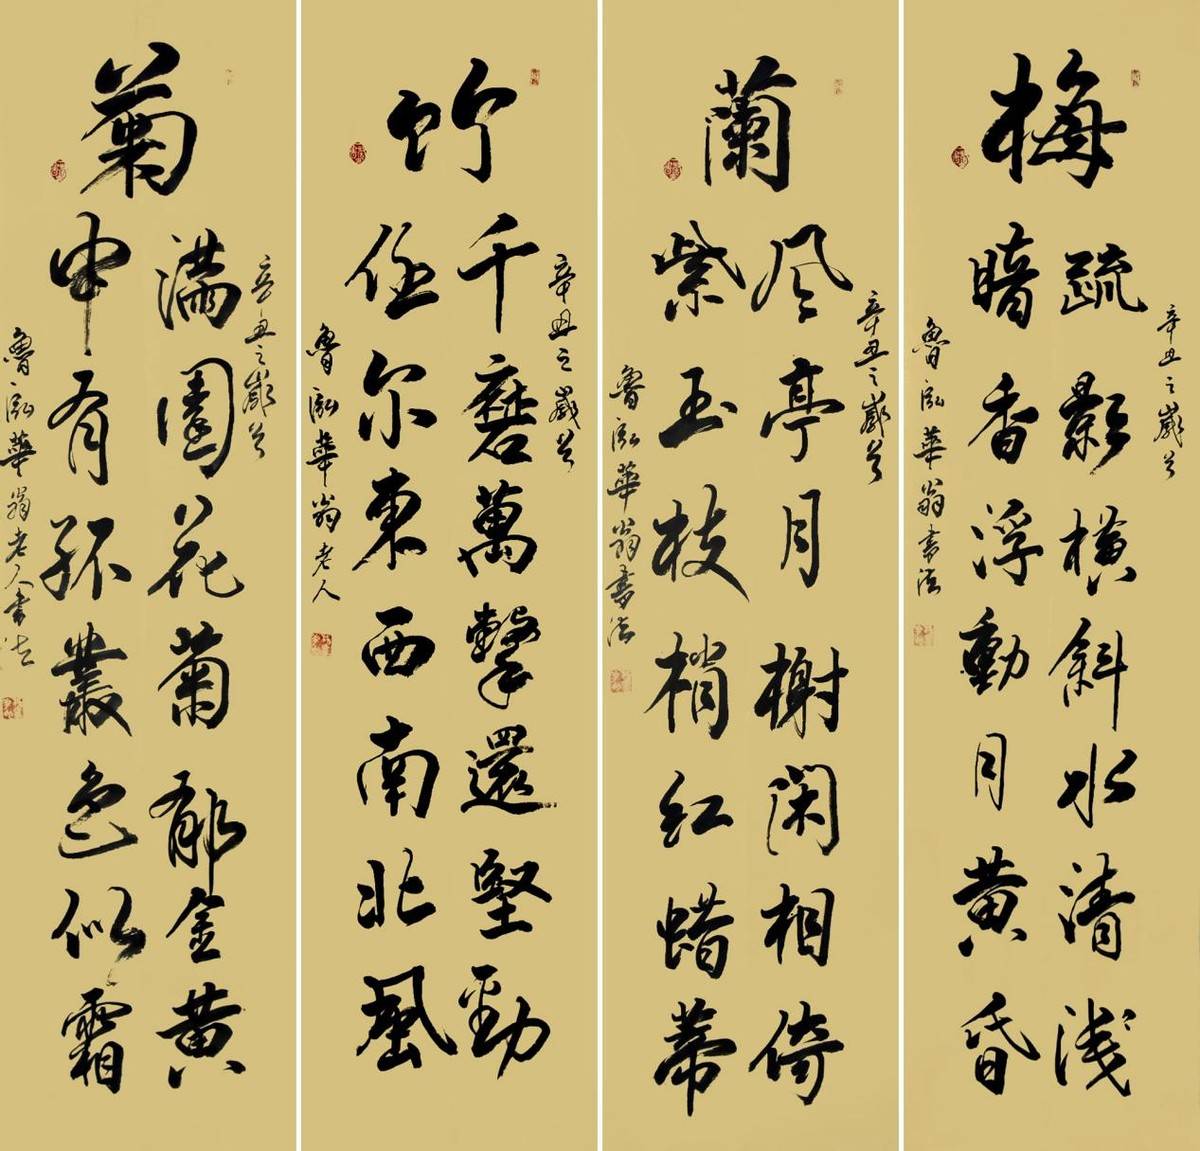 梅
辛丑之歲
疏影橫斜水清浅
暗香浮動月黄昏
魯泓華翁書法
蘭
辛丑之歲
风亭月榭闲相倚
紫玉枝梢红蜡蒂
魯泓華翁書法
竹
辛丑之歲
千磨萬擊還堅勁
任尔東西南北風
魯泓華翁老人
菊
辛丑之歲
满園花菊郁金黄
中有孤叢色似霜
魯泓華翁老人書法